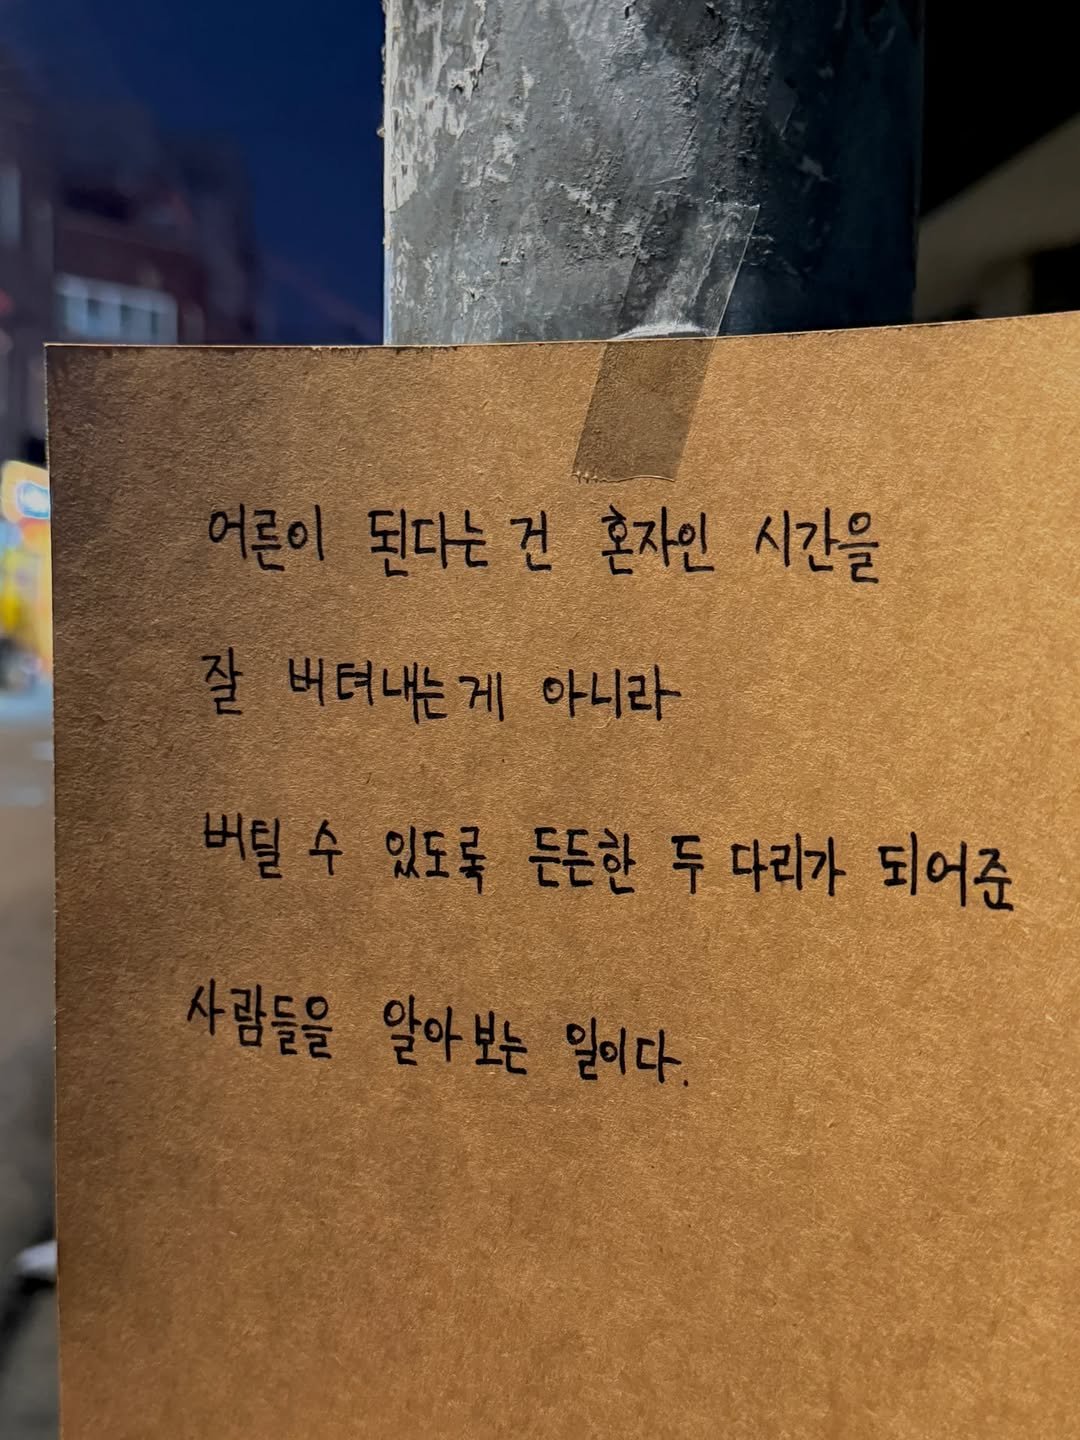 어른이 된다는 건 혼자인 시간을
잘 버텨내는게 아니라
버틸 수 있도록 든든한 두 다리가 되어준
사람들을 알아보는 일이다.